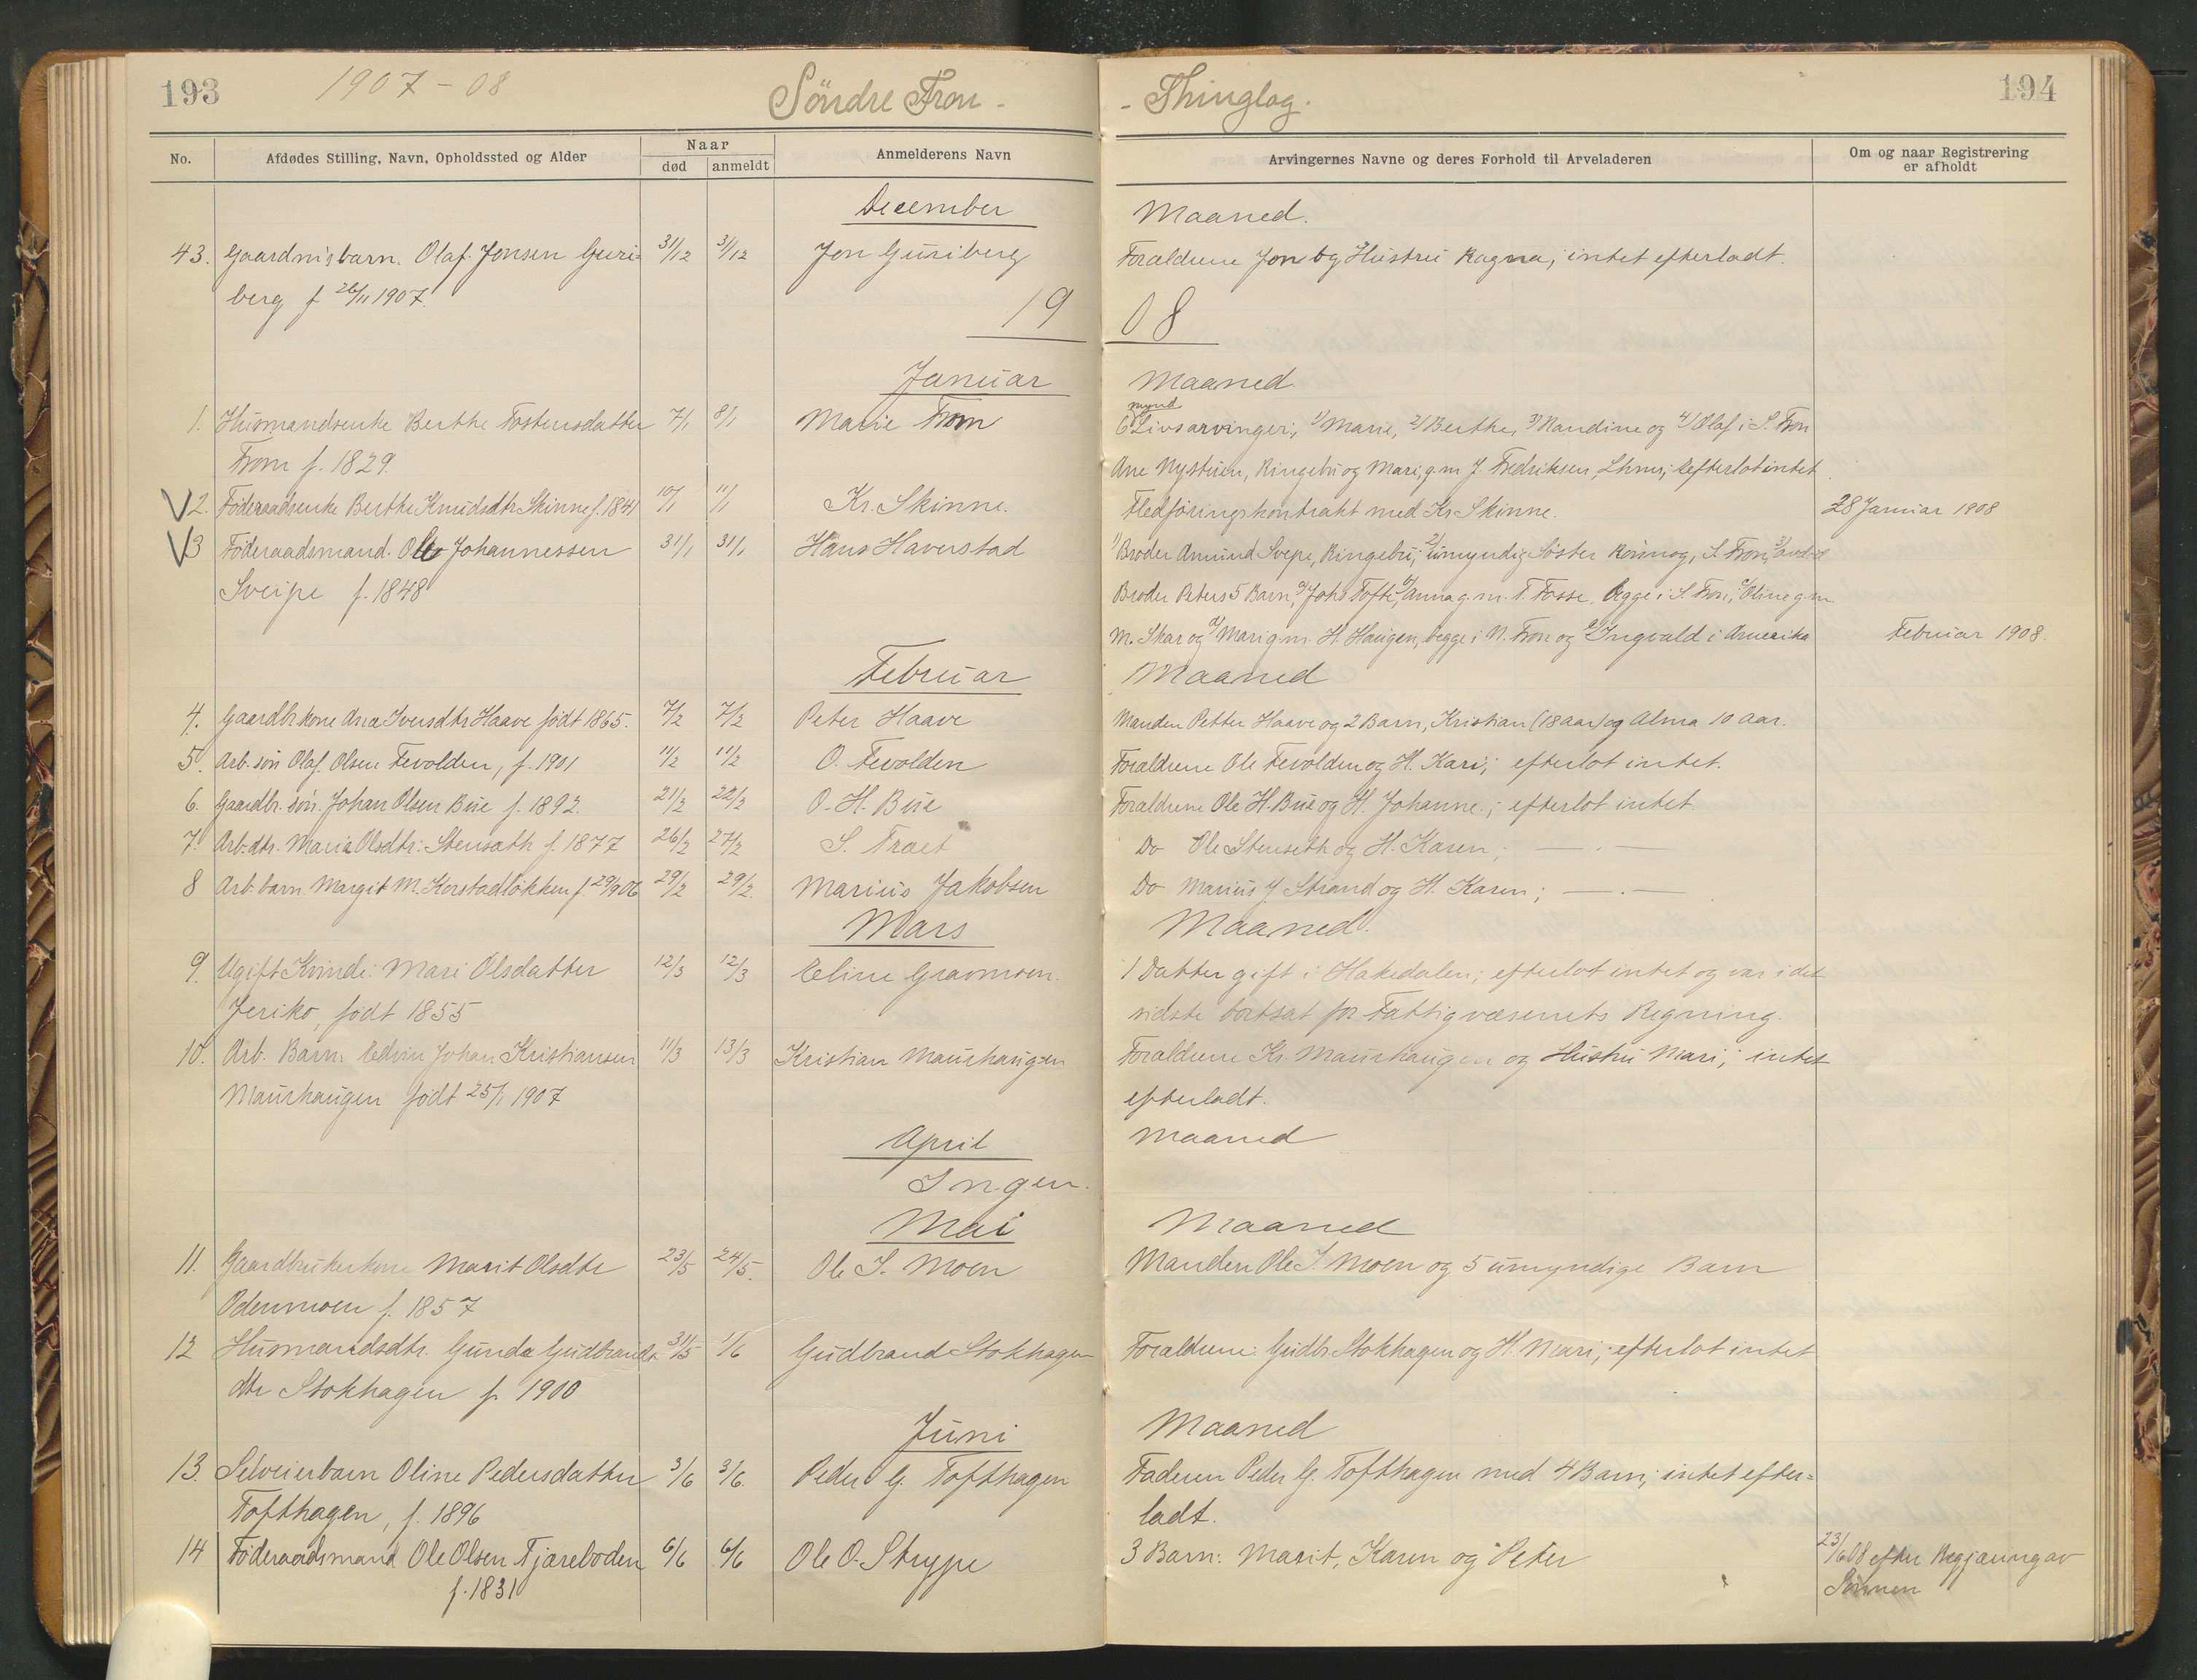 193 1907-08 Söndre Fron - - Thinglag. 194
No. Afdødes Stilling, Navn, Opholdssted og Alder Naar Anmelderens Navn Arvingernes Navne og deres Forhold til Arveladeren Om og naar Registrering
død anmeldt er afholdt
December Maaned.
43. Gaardmsbarn. Olaf Jonsen Guri- 31/12 31/12 Jon Guriberg Forældrene Jon og Hustru Ragna; intet efterladt.
berg f 26/11 1907.
19 08
Januar Maaned
mynd
1. Husmandsenke Berthe Tostensdatter 7/1 8/1 Marie From 6 Livsarvinger; 1) Marie, 2) Berthe, 3) Randine og 4) Olaf i S. Fron
From f. 1829. Ane Nystuen, Ringebu og Mari, g.m. J. Fredriksen, Lhmr; efterlot intet
V 2. Föderaadsenke Berthe Knudsdtr Skinne f. 1841 10/1 11/1 Kr. Skinne. Fledföringskontrakt med Kr Skinne. 28 Januar 1908
V 3 Föderaadsmand. Ole Johannessen 31/1 31/1 Hans Haverstad 1) Broder Amund Svepe, Ringebu; 2) umyndig Söster Rönnog, S. Fron, 3)
Sveipe f. 1848 Broder Peters 5 Barn, a) Johs Tofte, b) Anna g.m. T. Fosse. begge i S. Fron, c) Oline g.m
M. Skar og d) Mari g.m. H. Haugen, begge i N. Fron og e) Ingvald i Amerika Februar 1908.
Februar Maaned
4. Gaardbr kone Anea Iversdtr Haave födt 1865. 7/2 7/2 Peter Haave Manden Petter Haave og 2 Barn, Kristian (18 aar) og Alma 10 aar.
5. Arb. sön Olaf Olsen Fevolden, f. 1901 11/2 11/2 O. Fevolden Forældrene Ole Fevolden og H. Kari; efterlot intet.
6. Gaardbr. sön. Johan Olsen Bue f. 1892. 21/2 22/2 O. H. Bue Forældrene Ole H. Bue og H. Johanne.; efterlot intet
7. Arb. dtr. Maria Olsdtr: Stensæth f. 1877 26/2 27/2 S. Træet Do Ole Stenseth og H. Karen; — . —
8 Arb. barn. Margit M. Korstadlökken f. 29/9 06 29/2 29/2. Marius Jakobsen Do Marius J. Strand og H. Karen; — . —
Mars Maaned.
9. Ugift Kvinde: Mari Olsdatter 12/3 12/3 Eline Gravmoen. 1 Datter gift i Hakedalen; efterlot intet og var i det
Jeriko, födt 1855 sidste bortsat for Fattigvæsenets Regning.
10. Arb. Barn: Edvin Johan Kristiansen 11/3 13/3 Kristian Maurhaugen Forældrene Kr. Maurhaugen og Hustru Mari; intet
Maurhaugen födt 25/1 1907 efterladt.
April Maaned
Ingen.
Mai Maaned
11. Gaardbrukerkone Marit Olsdtr 23/5 24/5. Ole S. Moen Manden Ole S. Moen og 5 umyndige Barn
Odenmoen f. 1857
12 Husmandsdtr. Gunda Gudbrands 31/5 1/6 Gudbrand Stokhagen Forældrene: Gudbr. Stokhagen og H. Mari; efterlot intet
dtr Stokhagen f. 1900
Juni Maaned
13. Selveierbarn Oline Pedersdatter 3/6 3/6. Peder G. Tofthagen Faderen Peder G. Tofthagen med 4 Barn; intet efter-
Tofthagen, f. 1896 ladt.
14 Föderaadsmand Ole Olsen Tjæreboden 6/6 6/6 Ole O. Strype 3 Barn: Marit, Karen og Peter 23/6 08 efter Begjæring av
f. 1831 Sönnen